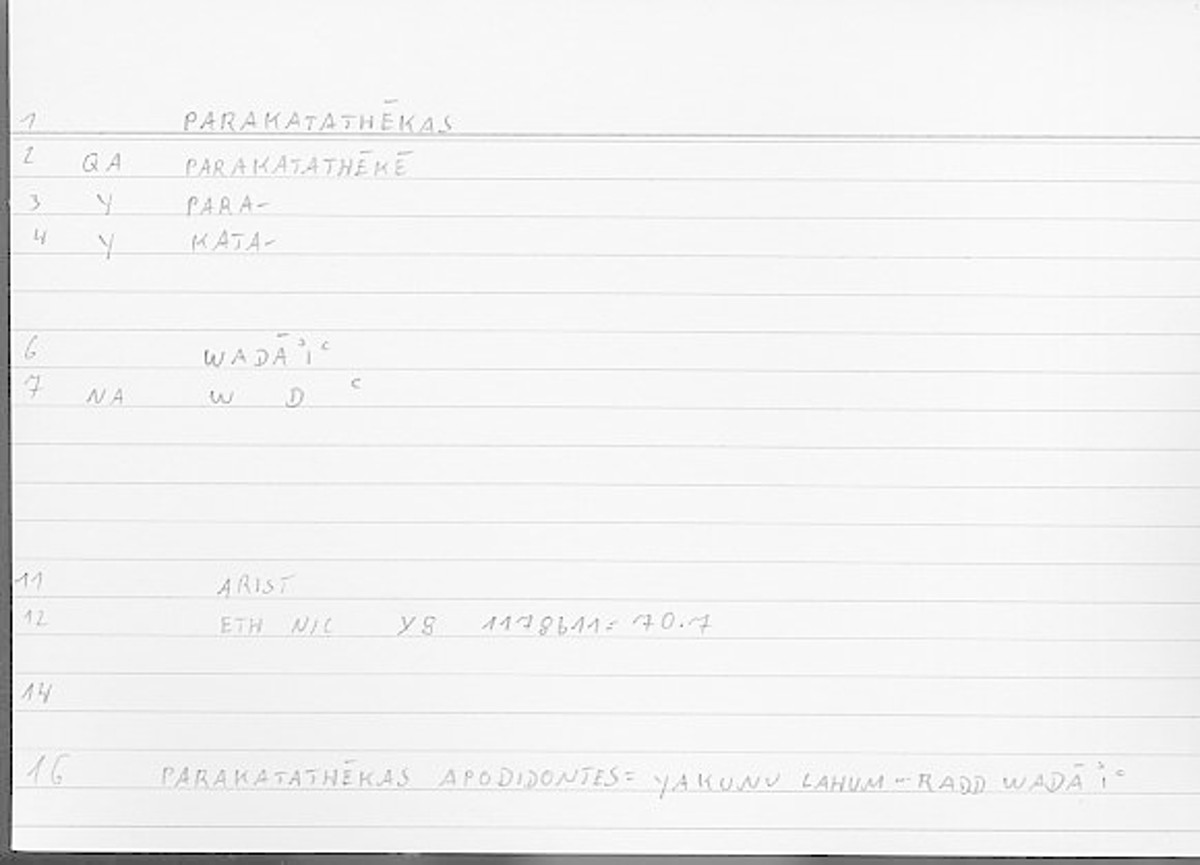 1 PARAKATATHĒKAS
2 QA PARAKATATHĒKĒ
3 Y PARA-
4 Y KATA-
6 WADĀʾIʿ
7 NA W D ʿ
11 ARIST
12 ETH NIC Y8 1178b11= 70.7
14
16 PARAKATATHĒKAS APODIDONTES= YAKUNU LAHUM -RADD WADĀʾIʿ